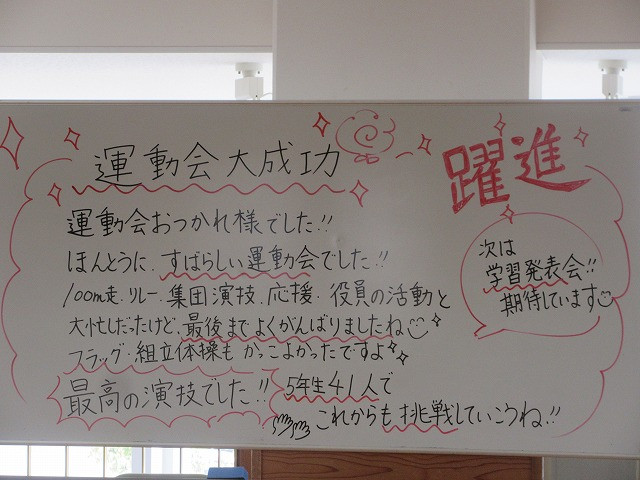 運動会大成功
躍進
運動会おつかれ様でした!!
ほんとうに、すばらしい運動会でした!!
100m走、リレー、集団演技、応援、役員の活動と
大忙しだったけど、最後までよくがんばりましたね
フラッグ・組立体操もかっこよかったですよ
最高の演技でした!!
5年生41人で
これからも挑戦していこうね!!
次は
学習発表会!!
期待しています